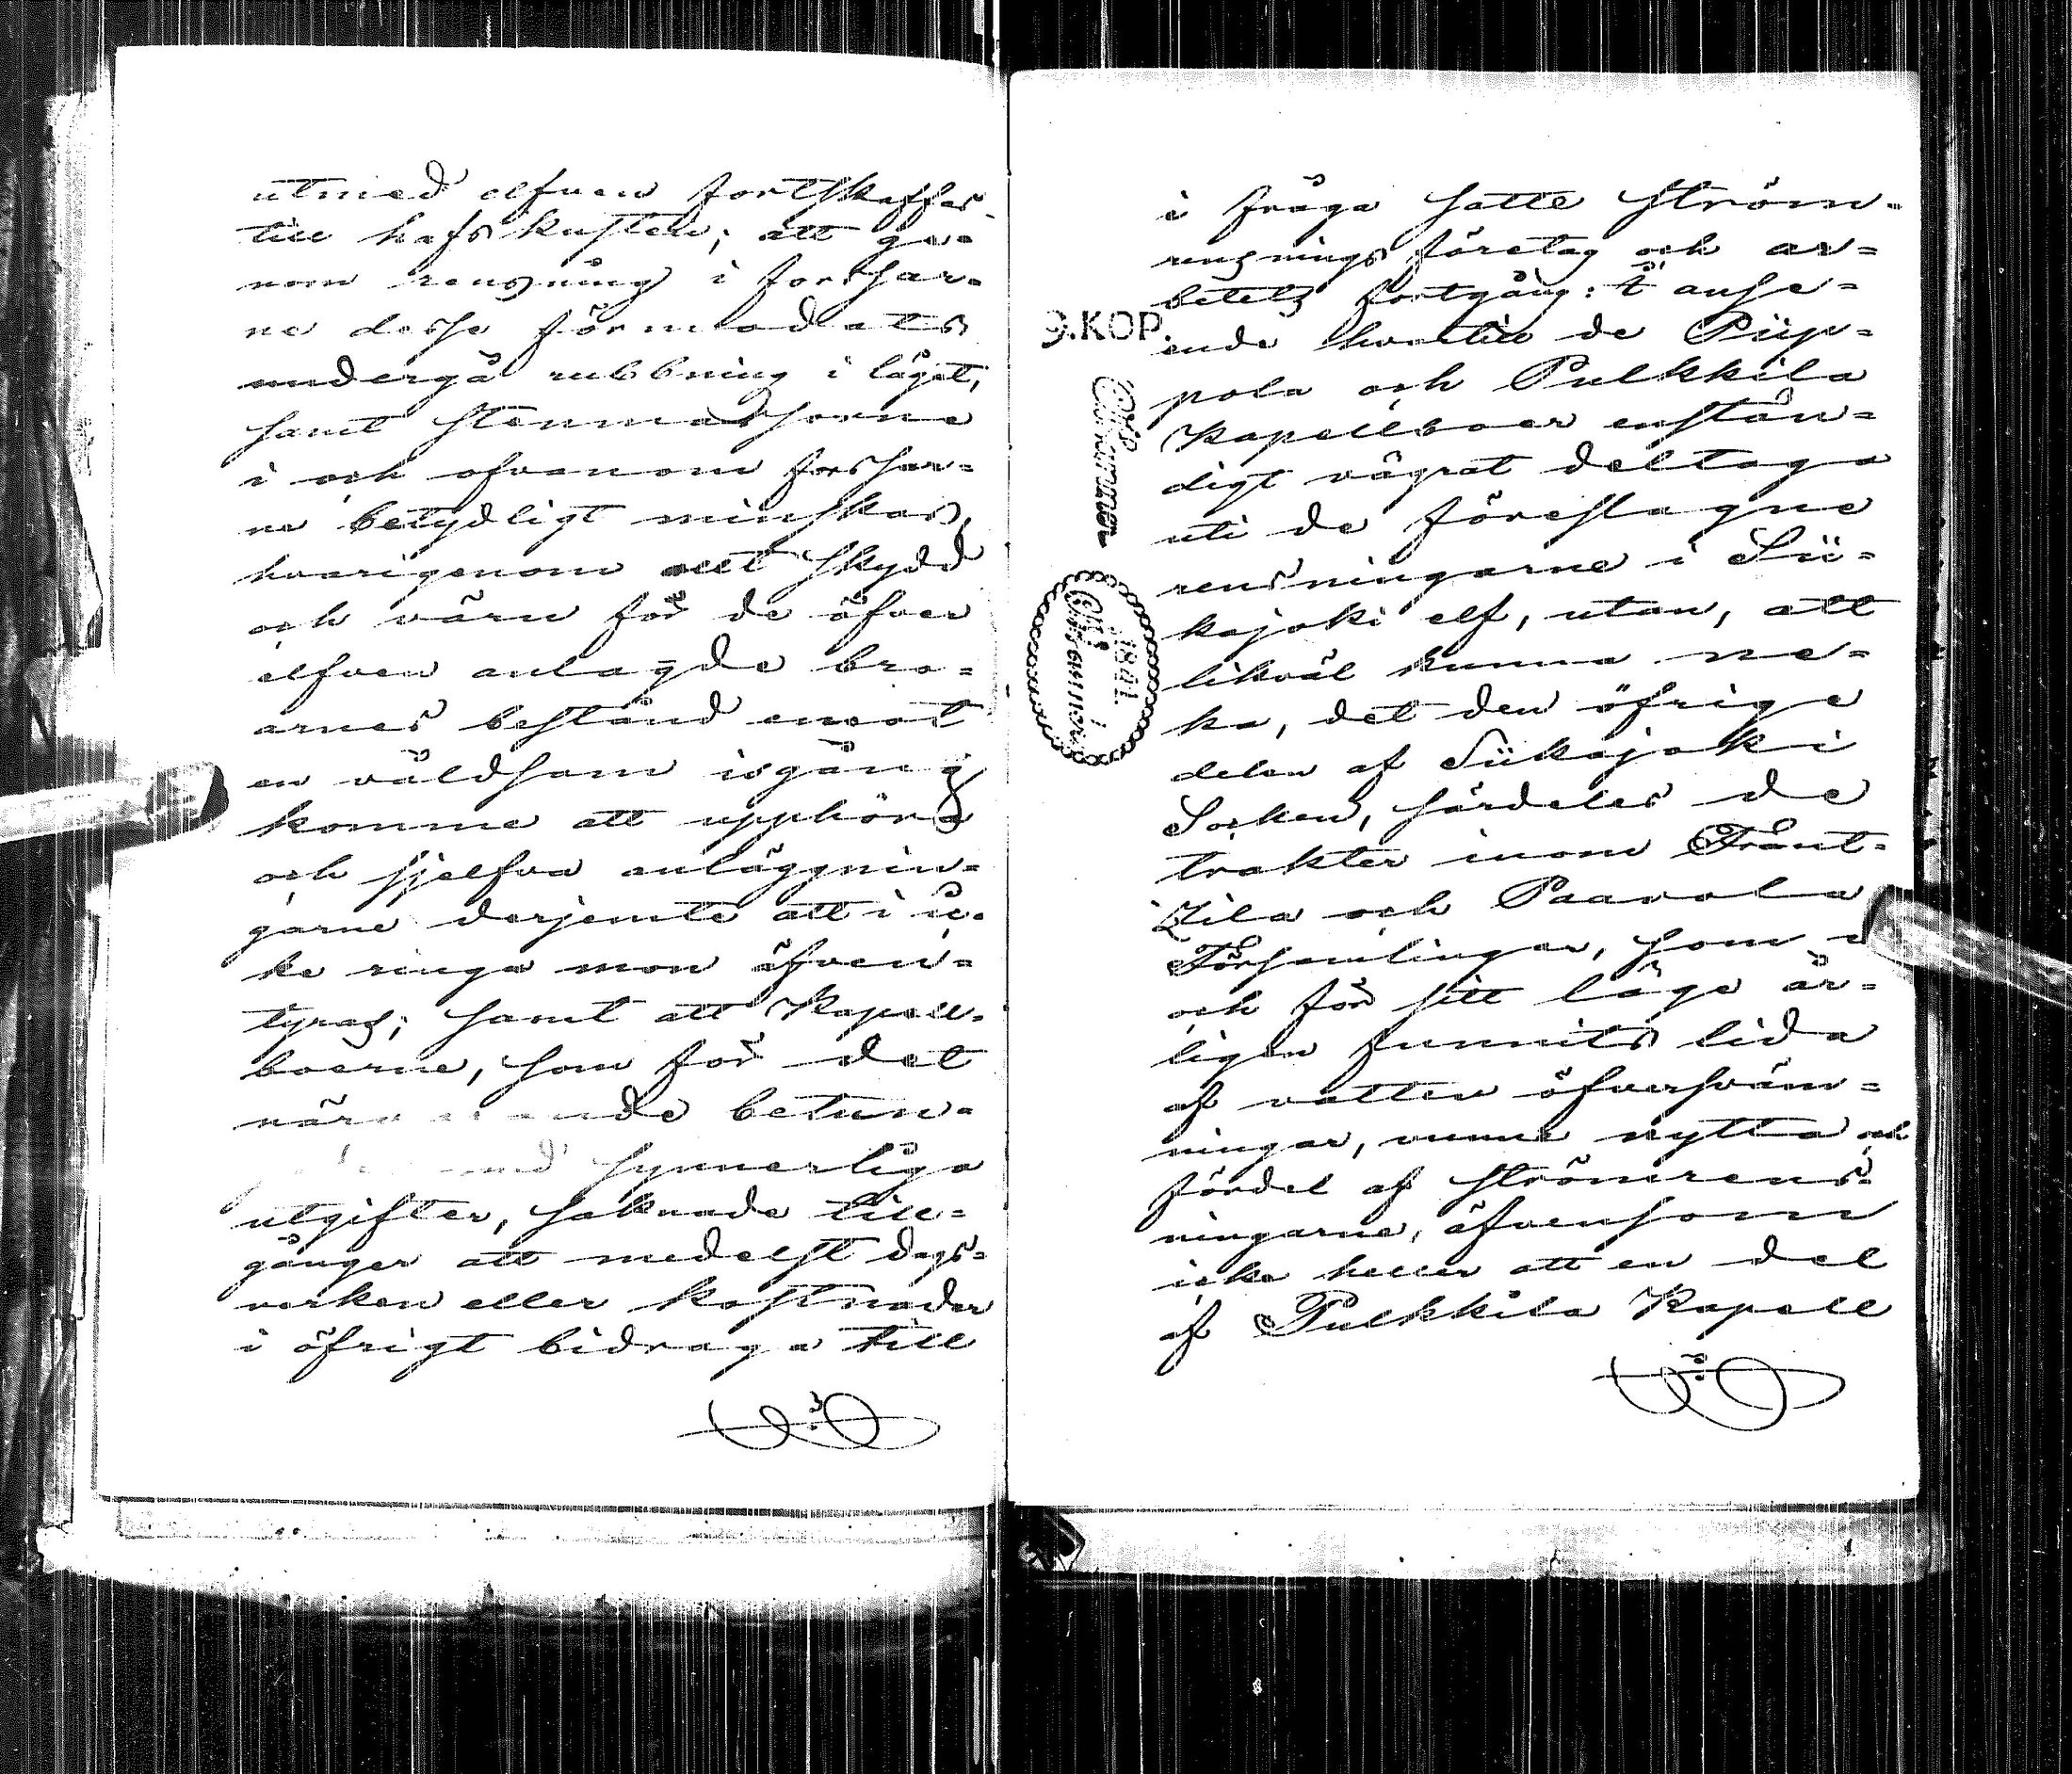 utmed elfven fortskaffas
till hafskusten; att ge=
nom rensning i forssar=
ne desse förmodats
undergå rubbning i läget,
samt stenmassorne
i och ofvanom forssar=
ne betydligt minskas,
hvarigenom allt skydd
och värn för de öfver
elfven anlagde bro=
arnes bestånd emot
en våldsam isgång
komme att upphöra
och sjelfva anläggnin=
garne derjemte att i ic=
ke ringa mon äfven=
tyras; samt att Kapell=
boerne, som för det
närvarande betun=
med synnerliga
utgifter, saknade till=
gånger att medelst dags=
verken eller kostnader
i öfrigt bidraga till
i fråga satte ström=
rensnings företag och ar=
betets fortgång: I anse=
ende hvartill de Piip=
pola och Pulkkila
Kapellboer enstän=
digt vägrat deltaga
uti de föreslagne
rensningarne i Sii=
kajoki elf, utan, att
likväl kunna ne=
ka, det den öfriga
delen af Siikajoki
Socken, särdeles de
trakter inom Frant=
zila och Paavola
Församlingar, som
och för sitt läge är=
ligen funnits lida
af vatten öfversväm=
ningar, vunne nytta och
fördel af strömrens=
ningarne, äfvensom
icke heller att en del
af Pulkkila Kapell
9.KOP.
1841.